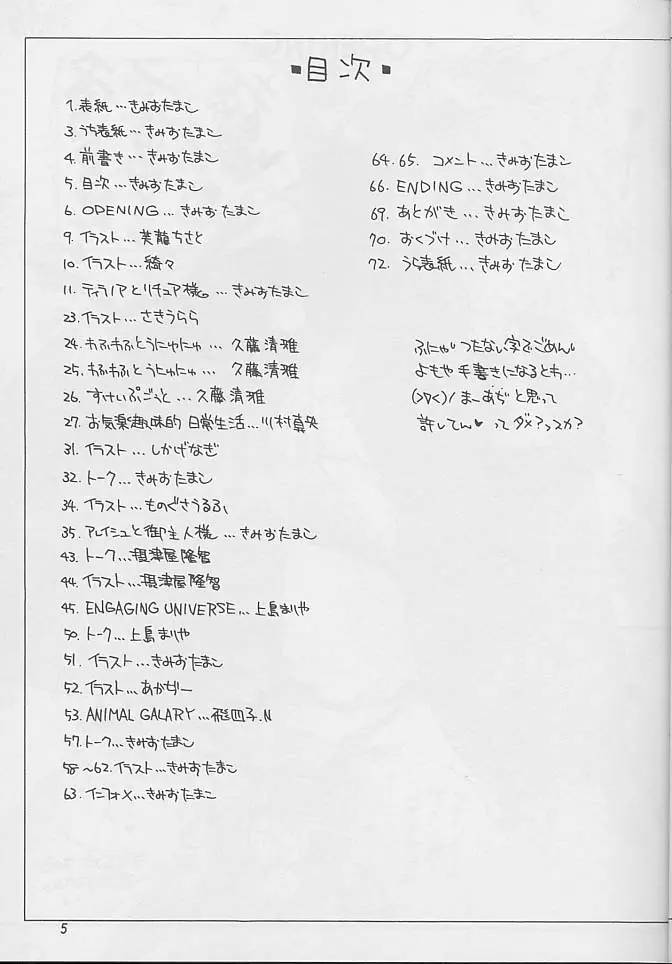 ■目次■
1. 表紙…きみおたまこ
3. うら表紙…きみおたまこ
4. 前書き…きみおたまこ
5. 目次…きみおたまこ
6. OPENING…きみおたまこ
9. イラスト…美龍ちさと
10. イラスト…綺々
11. ティラノアとリチュア様。…きみおたまこ
23. イラスト…さきうらら
24. もふもふとうにゅにゅ…久藤清雅
25. もふもふとうにゅにゅ…久藤清雅
26. すけいぷごっと…久藤清雅
27. お気楽趣味的日常生活…川村真央
31. イラスト…しかげなぎ
32. トーク…きみおたまこ
34. イラスト…ものぐさうるふ
35. アレイシュと御主人様…きみおたまこ
43. トーク…摂津屋隆智
44. イラスト…摂津屋隆智
45. ENGAGING UNIVERSE…上島まりや
50. トーク…上島まりや
51. イラスト…きみおたまこ
52. イラスト…あかぢー
53. ANIMAL GALARY…飛四子.N
57. トーク…きみおたまこ
58〜62. イラスト…きみおたまこ
63. インフォメ…きみおたまこ
64.65. コメント…きみおたまこ
66. ENDING…きみおたまこ
69. あとがき…きみおたまこ
70. おくづけ…きみおたまこ
72. うら表紙…きみおたまこ
ふにゃ〃つたない字でごめん〃
よもや手書きになるとわ…
まーあぢと思って
許してん♥ってダメ?っスか?
5